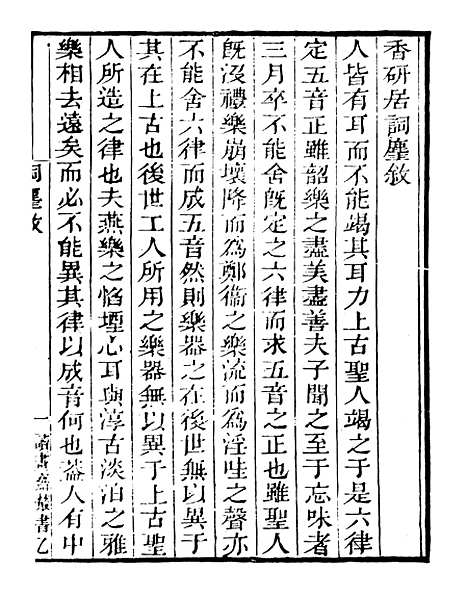 香研居詞麈敘
人皆有耳而不能竭其耳力上古聖人竭之于是六律
定五音正雖韶樂之盡美盡善夫子聞之至于忘味者
三月卒不能舍旣定之六律而求五音之正也雖聖人
旣沒禮樂崩壞降而爲鄭衞之樂流而爲淫哇之聲亦
不能舍六律而成五音然則樂器之在後世無以異于
其在上古也後世工人所用之樂器無以異于上古聖
人所造之律也夫燕樂之慆堙心耳與淳古淡泊之雅
樂相去遠矣而必不能異其律以成音何也蓋人有中
詞麈敘
一
讀畫齋叢書乙